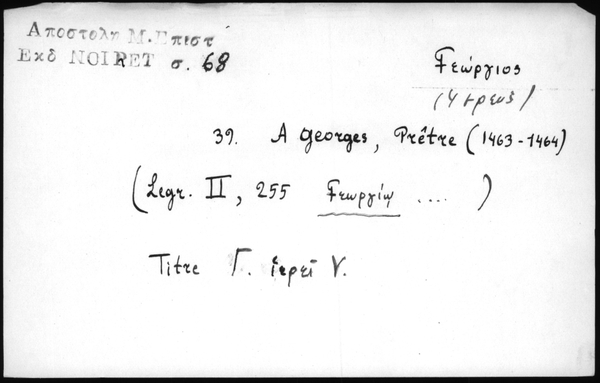 Αποστολη Μ. Επιστ
Εκδ NOIRET σ. 68
Γεώργιος
(ἱερεύς)
39. A Georges, Prêtre (1463-1464)
(Legr. II, 255 Γεωργίῳ .... )
Titre Γ. ἱερεῖ V.